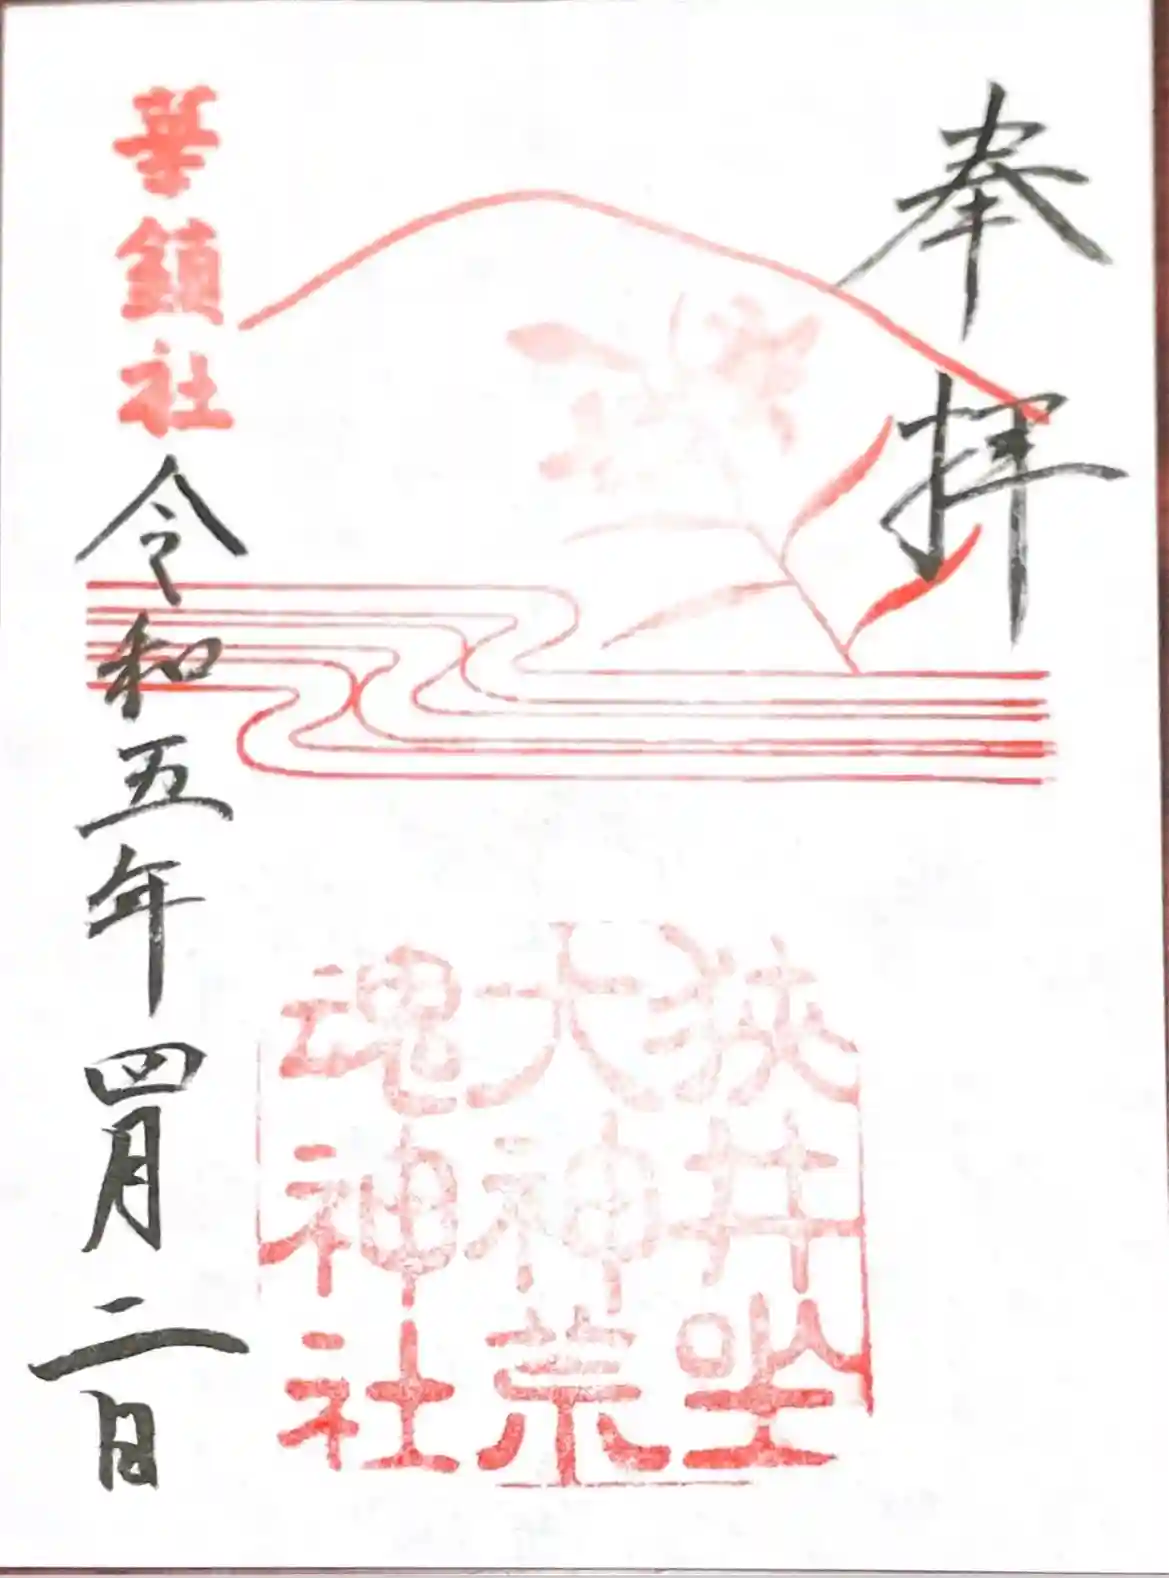 奉拝
狭井坐
大神荒
魂神社
華鎮社
令和五年四月二日